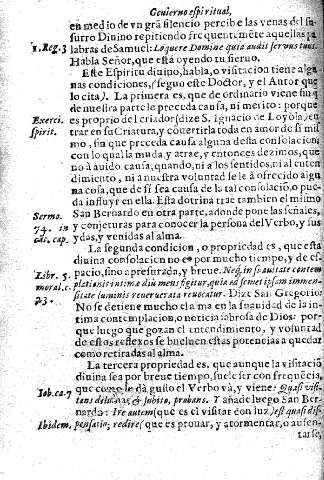 Gouierno espiritual,
en medio de vn grã silencio percibe las venas del su-
surro Diuino repitiendo frequentemẽte aquellas pa
1. Reg. 3 labras de Samuel: Loquere Domine quia audit seruus tuus.
Habla Señor, que està oyendo tu sieruo.
Este Espiritu diuino, habla, o visitacion tiene algu
nas condiciones, (segun este Doctor, y el Autor que
lo cita). La primera es, que de ordinario viene sin q̃
de nuestra parte le preceda causa, ni merito: porque
Exerci. es proprio del criador (dize S. Ignacio de Loyola) en
spirit. trar en su Criatura, y couertirla toda en amor de si mis
mo, sin que preceda causa alguna desta consolacion;
con lo qual la muda, y atrae, y entonces dezimos, que
no à auido causa, quando, ni a los sentidos, ni al enten
dimiento, ni à nuestra voluntad le le à ofrecido algu
na cosa, que de si sea causa de la tal consolaciõ, o pue-
da influyr en ella. Esta dotrina trae tambien el mismo
Sermo. San Bernardo en otra parte, adonde pone las señales,
74. in y conjeturas para conocer la persona del Verbo, y sus
cãt. cap. ydas, y venidas al alma.
La segunda condicion, o propriedad es, que esta
diuina consolacion no es por mucho tiempo, y de es-
Libr. 5. pacio, sino apresurada, y breue. Neq; in suauitate contem
moral. c. plationis intimæ diù mens figitur, quia ad semet ipsam immen-
23. sitate luminis reuerberata reuocatur. Dize San Gregorio
No se detiene mucho el alma en la suauidad de la in
tima contemplacion, o noticia sabrosa de Dios: por-
que luego que gozan el entendimiento, y voluntad
de estos reflexos se bueluen estas potencias a quedar
como retiradas al alma.
La tercera propriedad es, que aunque la visitaciõ
diuina sea por breue tiempo, suele ser con frequẽcia,
Iob. ca. 7 que como le dà gusto el Verbo và, y viene: Quasi visi-
tans diluculo, & subito, probans. Y añade luego San Ber-
nardo: Ire autem (que es el visitar don luz) est quasi dis-
Ibidem. pensatio; redire (que es prouar, y atormentar, o ausen-
tarse,